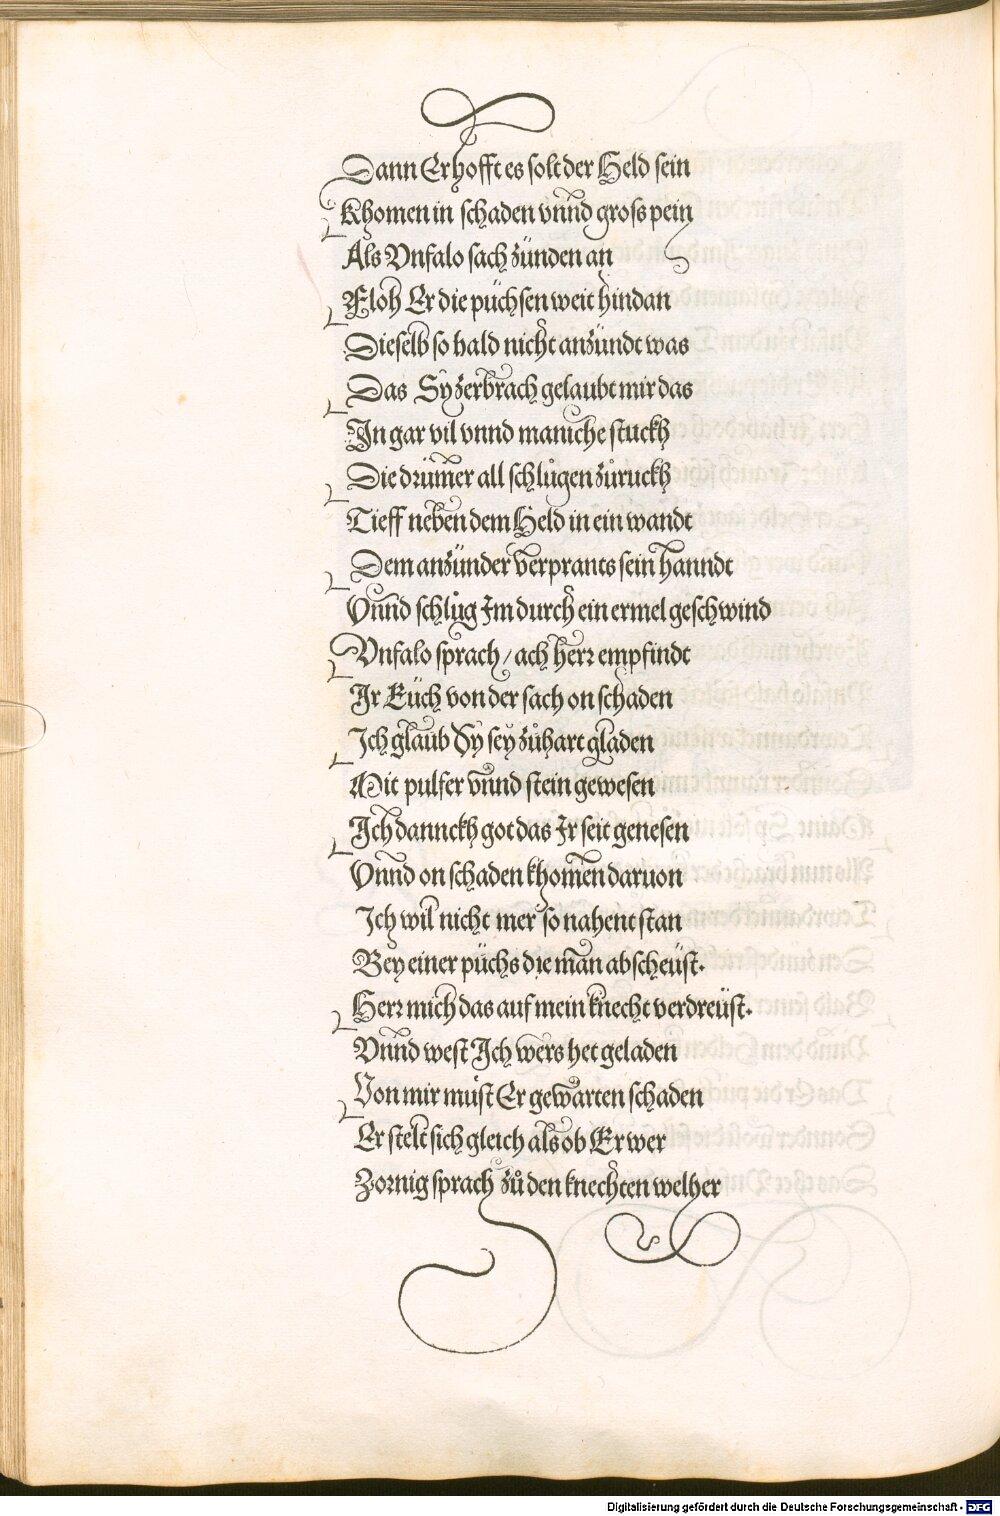 Dann Er hofft es solt der Held sein
Khomen in schaden vnnd gross pein
Als Vnfalo sach zünden an
Floh Er die püchsen weit hindan
Dieselb so bald nicht anzündt was
Das Sy zerbrach gelaubt mir das
In gar vil vnnd maniche stuckh
Die drümer all schlůgen zůruckh
Tieff neben dem Held in ein wandt
Dem anzünder verprants sein hanndt
Vnnd schlůg Im durch ein ermel geschwind
Vnfalo sprach / ach herr empfindt
Ir Eüch von der sach on schaden
Ich glaub Sy seÿ zůhart gladen
Mit pulfer vnnd stein gewesen
Ich dannckh got das Ir seit genesen
Vnnd on schaden khomen daruon
Ich wil nicht mer so nahent stan
Bey einer püchs die man abscheüst.
Herr mich das auf mein knecht verdreüst.
Vnnd west Ich wers het geladen
Von mir můst Er gewarten schaden
Er stelt sich gleich als ob Er wer
Zornig sprach zů den knechten welher
Digitalisierung gefördert durch die Deutsche Forschungsgemeinschaft - DFG